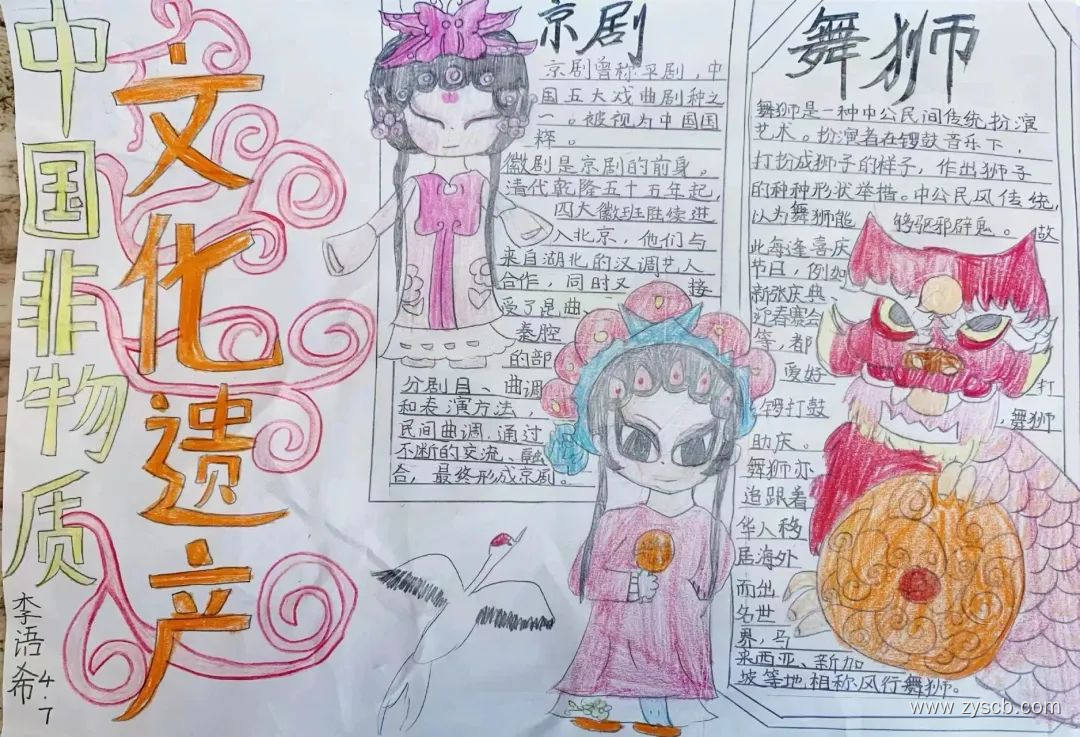 中国非物质
文化遗产
李语希
4.7
京剧
京剧曾称平剧，中
国五大戏曲剧种之
一。被视为中国国
粹。
徽剧是京剧的前身。
清代乾隆五十五年起，
四大徽班陆续进
入北京，他们与
来自湖北的汉调艺人
合作，同时又接
受了昆曲、
秦腔
的部
分剧目、曲调
和表演方法，
民间曲调，通过
不断的交流、融
合，最终形成京剧。
舞狮
舞狮是一种中公民间传统扮演
艺术。扮演者在锣鼓音乐下，
打扮成狮子的样子，作出狮子
的种种形状举措。中公民风传统，
以为舞狮能够驱邪辟鬼。故
此每逢喜庆
节日，例如
新张庆典、
迎春赛会
等，都
爱好打
锣打鼓，舞狮
助庆。
舞狮亦
追跟着
华人移
居海外
而出
名世
界，马
来西亚、新加
坡等地相称风行舞狮。
www.zyscb.com